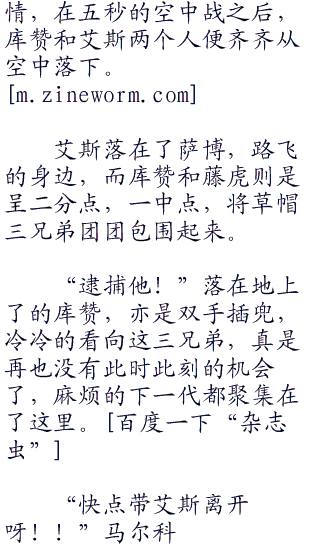 情，在五秒的空中战之后，
库赞和艾斯两个人便齐齐从
空中落下。
[m.zineworm.com]
艾斯落在了萨博，路飞
的身边，而库赞和藤虎则是
呈二分点，一中点，将草帽
三兄弟团团包围起来。
“逮捕他！”落在地上
了的库赞，亦是双手插兜，
冷冷的看向这三兄弟，真是
再也没有此时此刻的机会
了，麻烦的下一代都聚集在
了这里。[百度一下“杂志
虫”]
“快点带艾斯离开
呀！！”马尔科